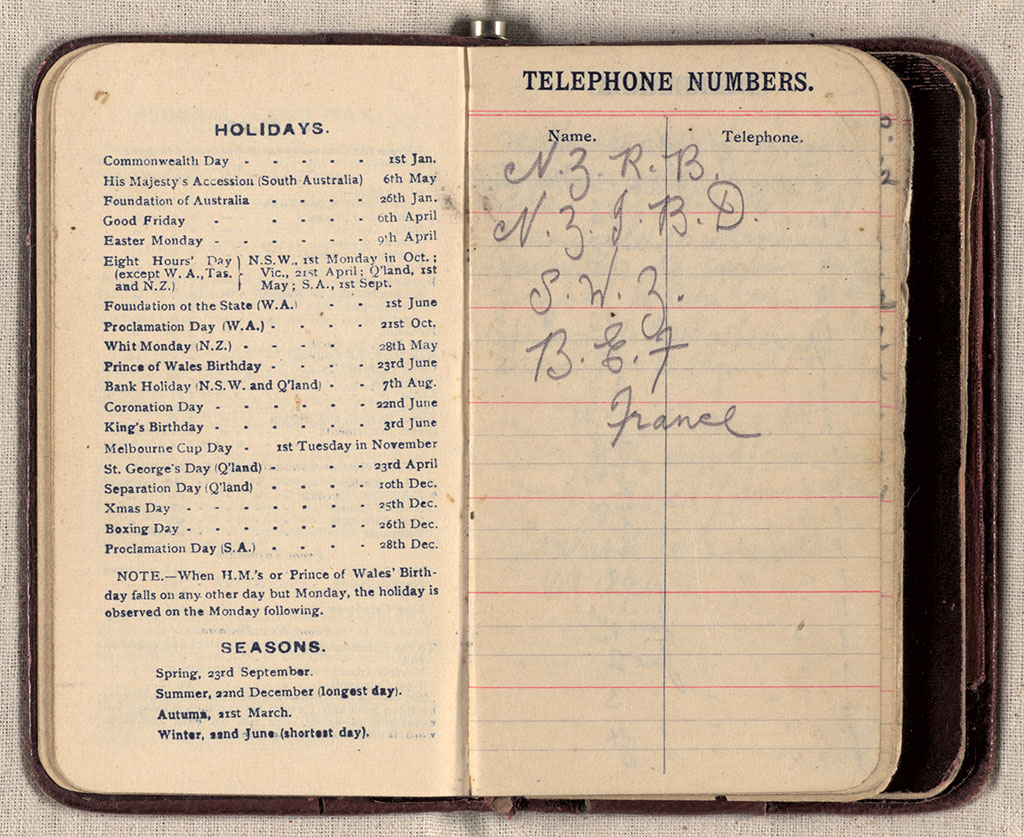 HOLIDAYS.
Commonwealth Day - - - - - 1st Jan.
His Majesty's Accession (South Australia) 6th May
Foundation of Australia - - - - 26th Jan.
Good Friday - - - - - 6th April
Easter Monday - - - - - 9th April
Eight Hours' Day (except W. A., Tas. and N.Z.) } N.S.W., 1st Monday in Oct.; Vic., 21st April; Q'land, 1st May; S.A., 1st Sept.
Foundation of the State (W.A.) - - 1st June
Proclamation Day (W.A.) - - - - 21st Oct.
Whit Monday (N.Z.) - - - - - 28th May
Prince of Wales Birthday - - - - 23rd June
Bank Holiday (N.S.W. and Q'land) - - 7th Aug.
Coronation Day - - - - - - 22nd June
King's Birthday - - - - - - 3rd June
Melbourne Cup Day - 1st Tuesday in November
St. George's Day (Q'land) - - - - 23rd April
Separation Day (Q'land) - - - - 10th Dec.
Xmas Day - - - - - - - 25th Dec.
Boxing Day - - - - - - - 26th Dec.
Proclamation Day (S.A.) - - - - 28th Dec.
NOTE.—When H.M.'s or Prince of Wales' Birth-
day falls on any other day but Monday, the holiday is
observed on the Monday following.
SEASONS.
Spring, 23rd September.
Summer, 22nd December (longest day).
Autumn, 21st March.
Winter, 22nd June (shortest day).
TELEPHONE NUMBERS.
Name. Telephone.
N. Z. R. B.
N. Z. I. B. D.
S. W. Z.
B. E. F
France